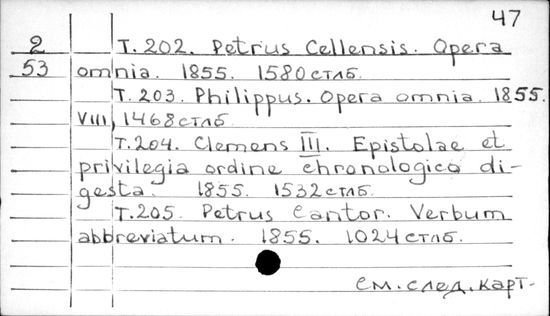 47
2 Т.202. Petrus Cellensis. Opera
53 omnia. 1855. 1580 стлб.
Т.203. Philippus. Opera omnia. 1855.
VIII, 1468 стлб.
Т.204. Clemens III. Epistolae et
privilegia ordine chronologico di-
gesta. 1855. 1532 стлб.
Т.205. Petrus Cantor. Verbum
abbreviatum. 1855. 1024 стлб.
см. след. карт.